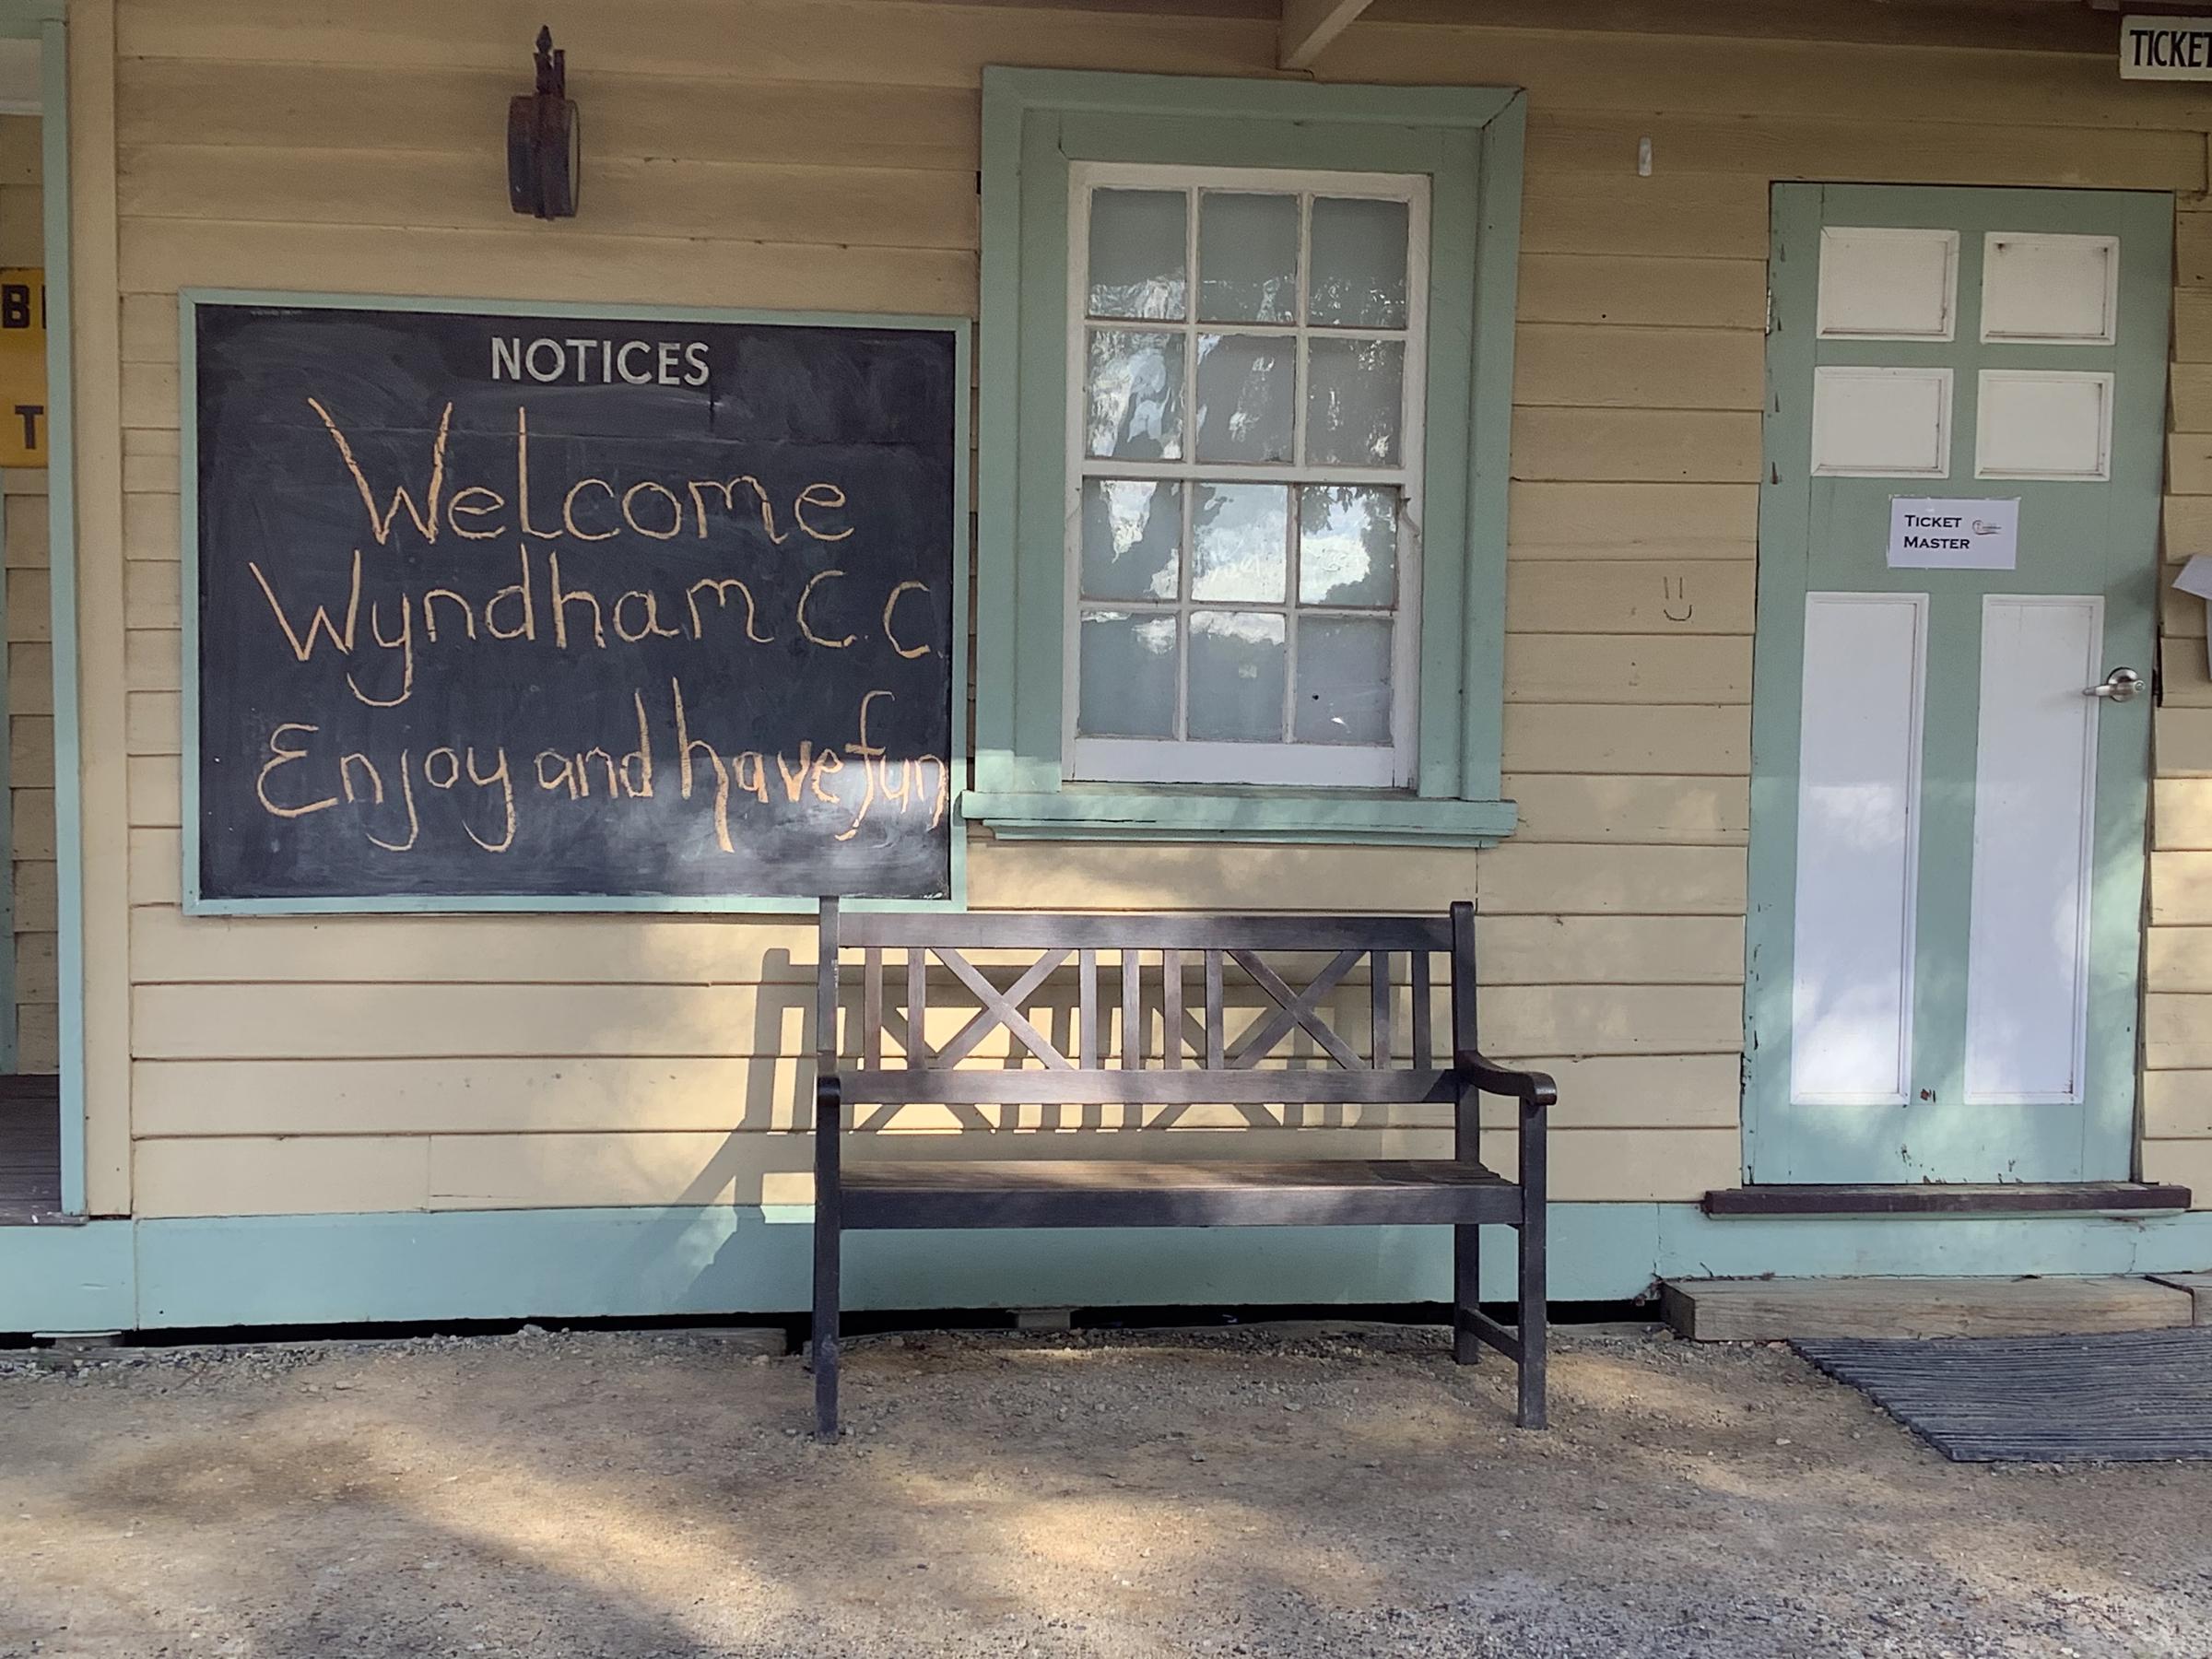 NOTICES
Welcome
Wyndham C.C.
Enjoy and have fun
TICKET
MASTER
TICKET
B
T